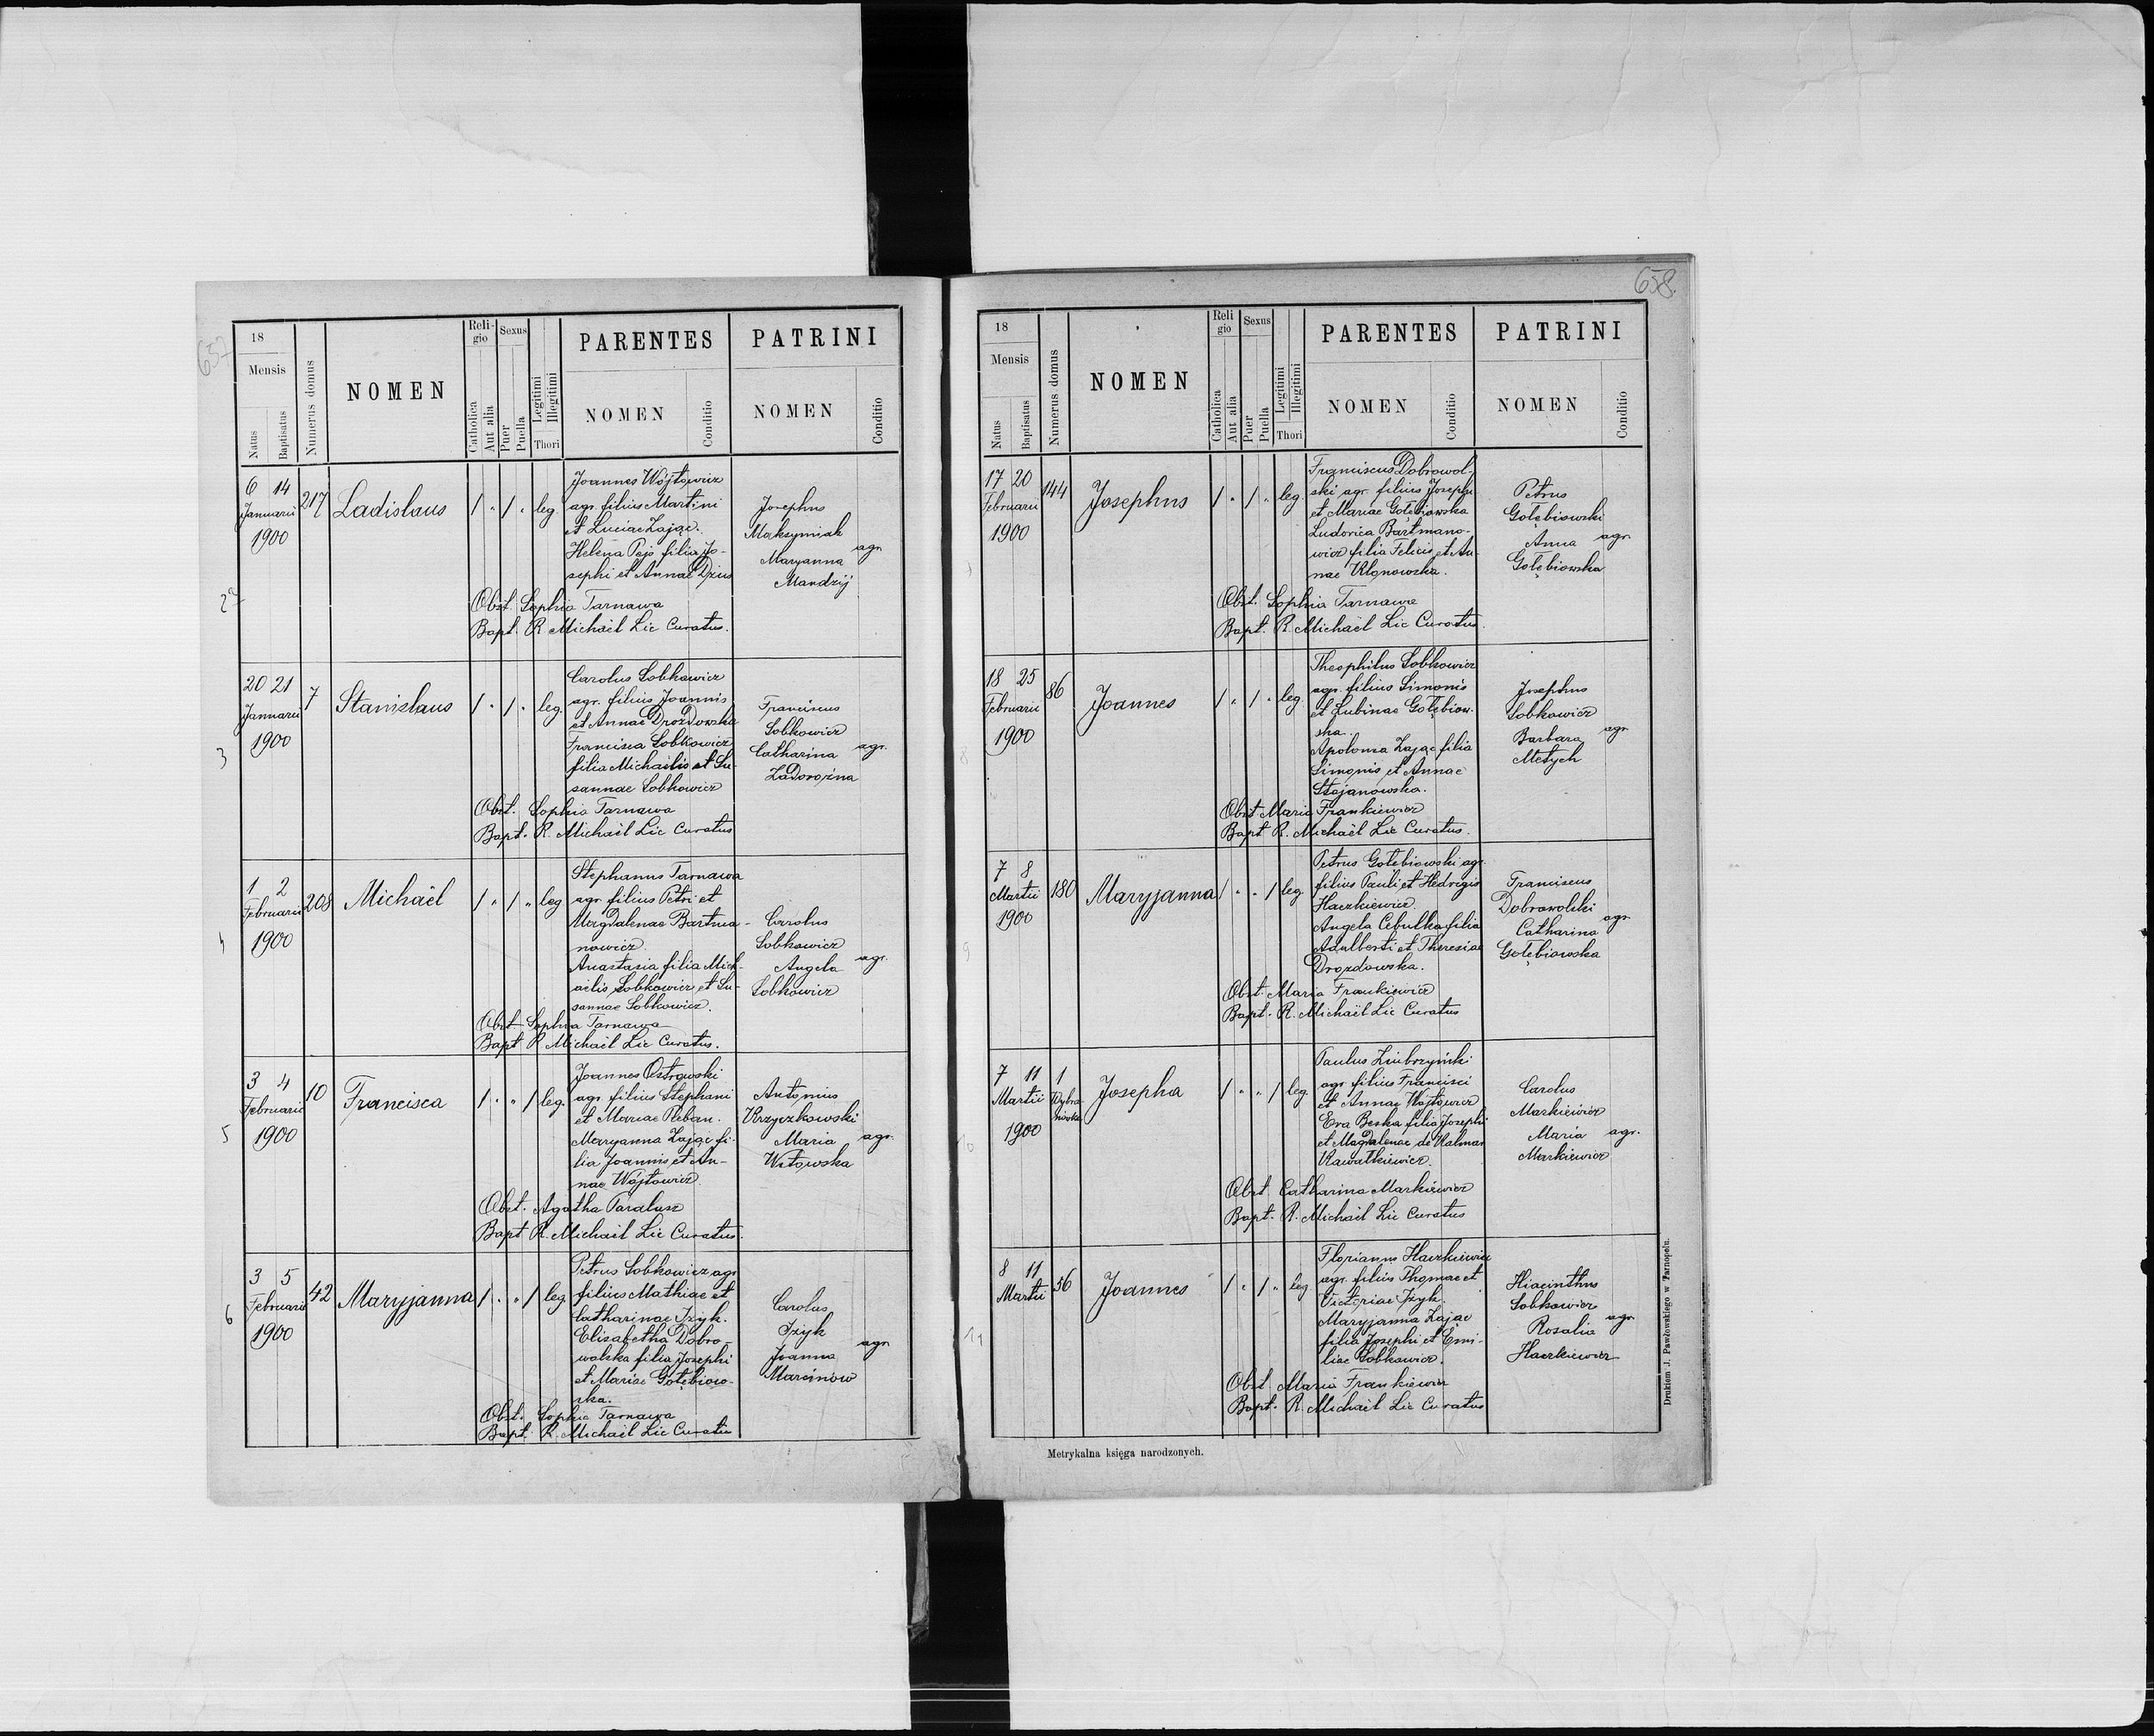 657
18
Mensis
Natus
Baptisatus
Numerus domus
NOMEN
Reli-
gio
Catholica
Aut alia
Sexus
Puer
Puella
Legitimi
Illegitimi
Thori
PARENTES
NOMEN
Conditio
PATRINI
NOMEN
Conditio
2
6 14
Januarii
1900
217
Ladislaus
/ " / " leg.
Joannes Wójtowicz
agr. filius Martini
et Luciae Zając.
Helena Pejo filia Jo-
sephi et Annae Dzius
Josephus
Maksymiak
Maryanna
Mandzij
agr.
Obst. Sophia Tarnawa
Bapt. R. Michaël Lic Curatus.
3
20 21
Januarii
1900
7
Stanislaus
/ " / " leg.
Carolus Sobkowicz
agr. filius Joannis
et Annae Drozdowska
Francisca Sobkowicz
filia Michaëlis et Su-
sannae Sobkowicz
Franciscus
Sobkowicz
Catharina
Zadorożna
agr.
Obst. Sophia Tarnawa
Bapt. R. Michaël Lic Curatus
4
1 2
Februarii
1900
208
Michaël
/ " / " leg
Stephanus Tarnawa
agr. filius Petri et
Magdalenae Bartma-
nowicz.
Anastasia filia Mich-
aelis Sobkowicz et Su-
sannae Sobkowicz.
Carolus
Sobkowicz
Angela
Sobkowicz
agr.
Obst Sophia Tarnawa
Bapt R. Michaël Lic Curatus.
5
3 4
Februarii
1900
10
Francisca
/ " " / leg.
Joannes Ostrowski
agr. filius Stephani
et Mariae Pleban.
Maryanna Zając fi-
lia Joannis et An-
nae Wójtowicz.
Antonius
Krzyczkowski
Maria
Witowska
agr.
Obst. Agatha Paralusz
Bapt R. Michaël Lic Curatus.
6
3 5
Februarii
1900
42
Maryjanna
/ " " / leg
Petrus Sobkowicz agr
filius Mathiae et
Catharinae Jżyk.
Elisabetha Dobro-
wolska filia Josephi
et Mariae Gołębiow-
ska.
Carolus
Jżyk
Joanna
Marcinow
agr.
Obst. Sophia Tarnawa
Bapt. R. Michaël Lic Curatus
658.
18
Mensis
Natus
Baptisatus
Numerus domus
NOMEN
Reli
gio
Catholica
Aut alia
Sexus
Puer
Puella
Legitimi
Illegitimi
Thori
PARENTES
NOMEN
Conditio
PATRINI
NOMEN
Conditio
7
17 20
Februarii
1900
144
Josephus
/ " / " leg.
Franciscus Dobrowol-
ski agr. filius Josephi
et Mariae Gołębiowska
Ludovica Bartmano-
wicz filia Felicis et An-
nae Klonowska.
Petrus
Gołębiowski
Anna
Gołębiowska
agr.
Obst. Sophia Tarnawa
Bapt. R. Michaël Lic Curatus.
8
18 25
Februarii
1900
86
Joannes
/ " / " leg.
Theophilus Sobkowicz
agr. filius Simonis
et Lubinae Gołębiow-
ska.
Apolonia Zając filia
Simonis et Annae
Stojanowska.
Josephus
Sobkowicz
Barbara
Metych
agr
Obst Maria Frankiewicz
Bapt R. Michaël Lic Curatus.
9
7 8
Martii
1900
180
Maryjanna
/ " " / leg
Petrus Gołebiowski agr.
filius Pauli et Hedvigis
Haczkiewicz.
Angela Cebulka filia
Adalberti et Theresiae
Drozdowska.
Franciscus
Dobrowolski
Catharina
Gołębiowska
agr.
Obst. Maria Frankiewicz
Bapt. R. Michaël Lic Curatus
10
7 11
Martii
1900
1
Josepha
/ " " / leg.
Paulus
agr. filius Francisci
et Annae Wójtowicz
Eva Beska filia Josephi
et Magdalenae de Kalman
Kawałkiewicz.
Carolus
Markiewicz
Maria
Markiewicz
agr.
Obst. Catharina Markiewicz
Bapt. R. Michaël Lic Curatus
11
8 11
Martii
56
Joannes
/ " / " leg
Florianus Haczkiewicz
agr. filius Thomae et
Victoriae Jżyk.
Maryjanna Zając
filia Josephi et Emi-
liae Sobkowicz.
Hiacinthus
Sobkowicz
Rosalia
Haczkiewicz
agr.
Obst Maria Frankiewicz
Bapt. R. Michaël Lic Curatus
Metrykalna księga narodzonych.
Drukiem J. Pawłowskiego w Tarnopolu.